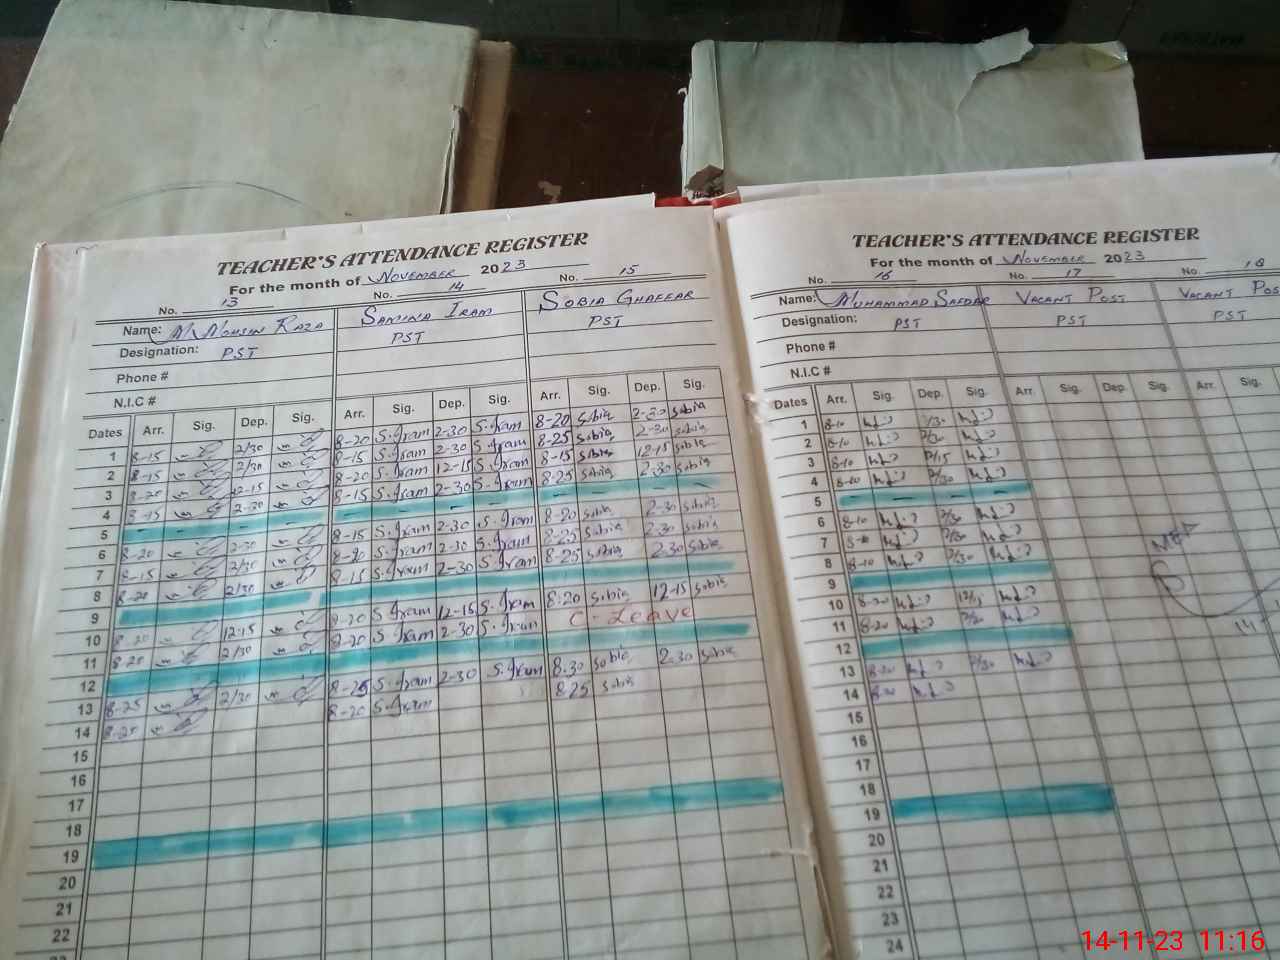 TEACHER'S ATTENDANCE REGISTER
For the month of November 2023
No. 13 No. 14 No. 15
Name: M. Mohsin Raza Samina Iram Sobia Ghaffar
Designation: PST PST PST
Phone #
N.I.C #
Dates Arr. Sig. Dep. Sig. Arr. Sig. Dep. Sig. Arr. Sig. Dep. Sig.
1 8-15 2/30 8-20 S.Iram 2-30 S.Iram 8-20 Sobia 2-30 Sobia
2 8-15 2/30 8-15 S.Iram 2-30 S.Iram 8-25 Sobia 2-30 Sobia
3 8-20 12-15 8-20 S.Iram 12-15 S.Iram 8-15 Sobia 12-15 Sobia
4 8-15 2-30 8-15 S.Iram 2-30 S.Iram 8-25 Sobia 2-30 Sobia
5
6 8-20 2-30 8-15 S.Iram 2-30 S.Iram 8-20 Sobia 2-30 Sobia
7 8-15 2/30 8-20 S.Iram 2-30 S.Iram 8-25 Sobia 2-30 Sobia
8 8-20 2/30 8-15 S.Iram 2-30 S.Iram 8-25 Sobia 2-30 Sobia
9
10 8-20 12-15 8-20 S.Iram 12-15 S.Iram 8-20 Sobia 12-15 Sobia
11 8-20 2/30 8-20 S.Iram 2-30 S.Iram C-Leave
12
13 8-25 2/30 8-25 S.Iram 2-30 S.Iram 8.30 Sobia 2-30 Sobia
14 8-20 S.Iram 8-25 Sobia
15
16
17
18
19
20
21
22
TEACHER'S ATTENDANCE REGISTER
For the month of November 2023
No. 16 No. 17 No. 18
Name: Muhammad Safdar Vacant Post Vacant Pos
Designation: PST PST PST
Phone #
N.I.C #
Dates Arr. Sig. Dep. Sig. Arr. Sig. Dep. Sig. Arr. Sig.
1 8-10 2/30
2 8-10 2/30
3 8-10
4 2/30
5
6 8-10 2/30
7 2/30
8 8-10 2/30
9
10 8-20
11 8-20
12
13 8-20 2/30
14 8-20
15
16
17
18
19
20
21
22
23
24
14-11-23 11:16